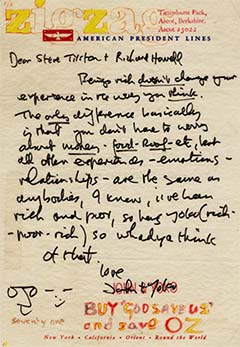 zigzag
Tittenhurst Park,
Ascot, Berkshire.
Ascot 23022
AMERICAN PRESIDENT LINES
Dear Steve Tilston & Richard Howell
Being rich doesn't change your
experience in the way you think.
The only difference basically
is that you don't have to worry
about money - food - roof - etc, but
all other experiences - emotions -
relationships - are the same as
anybodies, I know, I've been
rich and poor, so has Yoko (rich -
poor - rich) so whadya think
of that.
love
John & Yoko
seventy one
BUY 'GOD SAVE US'
and save OZ
New York • California • Orient • Round the World